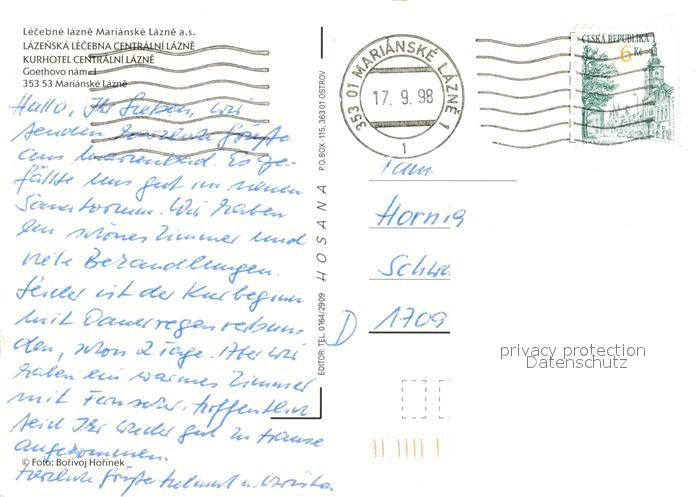 Léčebné lázně Mariánské Lázně a.s.
LÁZEŇSKÁ LÉČEBNA CENTRÁLNÍ LÁZNĚ
KURHOTEL CENTRÁLNÍ LÁZNĚ
Goethovo nám. 1
353 53 Mariánské Lázně
Hallo, Ihr Lieben, wir
senden herzliche Grüße
aus Marienbad. Es ge-
fällt uns gut im neuen
Sanatorium. Wir haben
ein schönes Zimmer und
viele Behandlungen.
Leider ist der Kurbeginn
mit Dauerregen verbun
den, schon 2 Tage. Aber wir
haben ein warmes Zimmer
mit Fernseher. Hoffentlich
seid Ihr wieder gut zu Hause
angekommen.
Herzliche Grüße Helmut u.
© Foto: Bořivoj Hořínek
EDITOR: TEL. 0164/2909 HOSANA P.O.BOX-115, 363 01 OSTROV
353 01 MARIÁNSKÉ LÁZNĚ 1
17. 9. 98
1
ČESKÁ REPUBLIKA
6 Kč
Fam.
Hornig
Schwa
D 1709
privacy protection
Datenschutz